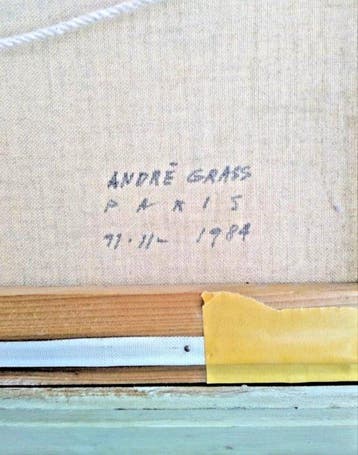 ANDRÉ GRASS
PARIS
11-11- 1984